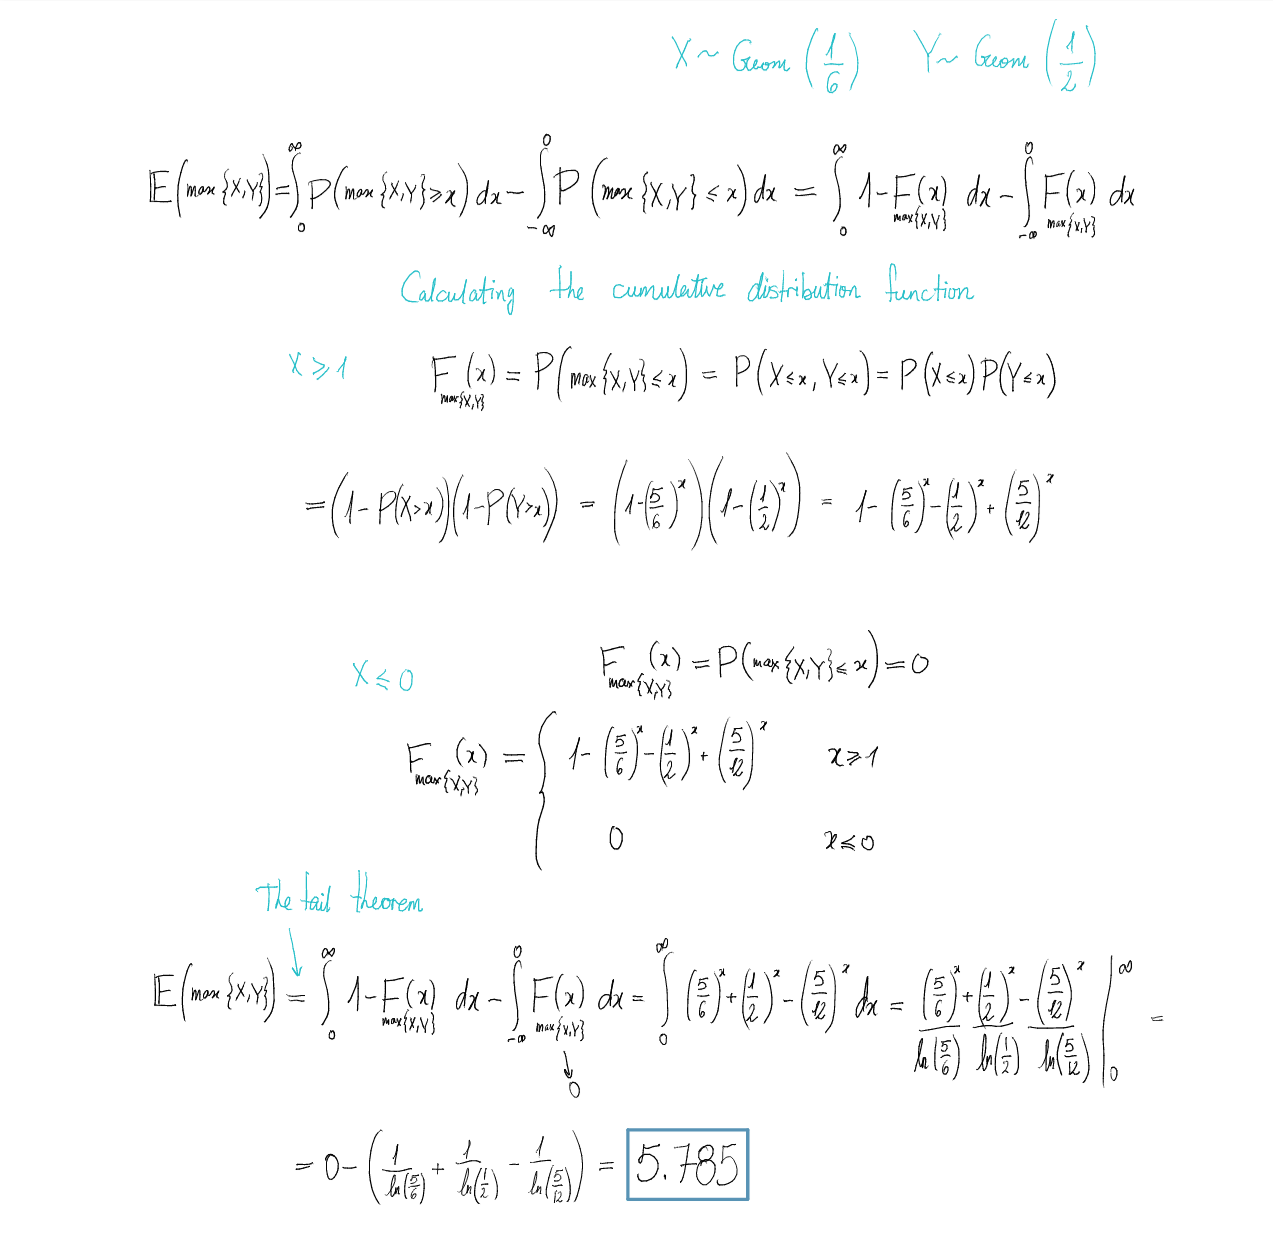 X ~ Geom (1/6) Y ~ Geom (1/2)
E(max{X,Y}) = ∫_0^∞ P(max{X,Y} ≥ x) dx − ∫_{-∞}^0 P(max{X,Y} ≤ x) dx = ∫_0^∞ 1 − F_{max{X,Y}}(x) dx − ∫_{-∞}^0 F_{max{X,Y}}(x) dx
Calculating the cumulative distribution function
X ≥ 1 F_{max{X,Y}}(x) = P(max{X,Y} ≤ x) = P(X ≤ x, Y ≤ x) = P(X ≤ x) P(Y ≤ x)
= (1 − P(X > x))(1 − P(Y > x)) = (1 − (5/6)^x)(1 − (1/2)^x) = 1 − (5/6)^x − (1/2)^x + (5/12)^x
X ≤ 0 F_{max{X,Y}}(x) = P(max{X,Y} ≤ x) = 0
F_{max{X,Y}}(x) = { 1 − (5/6)^x − (1/2)^x + (5/12)^x x ≥ 1
0 x ≤ 0
The tail theorem
E(max{X,Y}) = ∫_0^∞ 1 − F_{max{X,Y}}(x) dx − ∫_{-∞}^0 F_{max{X,Y}}(x) dx = ∫_0^∞ (5/6)^x + (1/2)^x − (5/12)^x dx = (5/6)^x / ln(5/6) + (1/2)^x / ln(1/2) − (5/12)^x / ln(5/12) |_0^∞ =
0
= 0 − (1/ln(5/6) + 1/ln(1/2) − 1/ln(5/12)) = 5.785